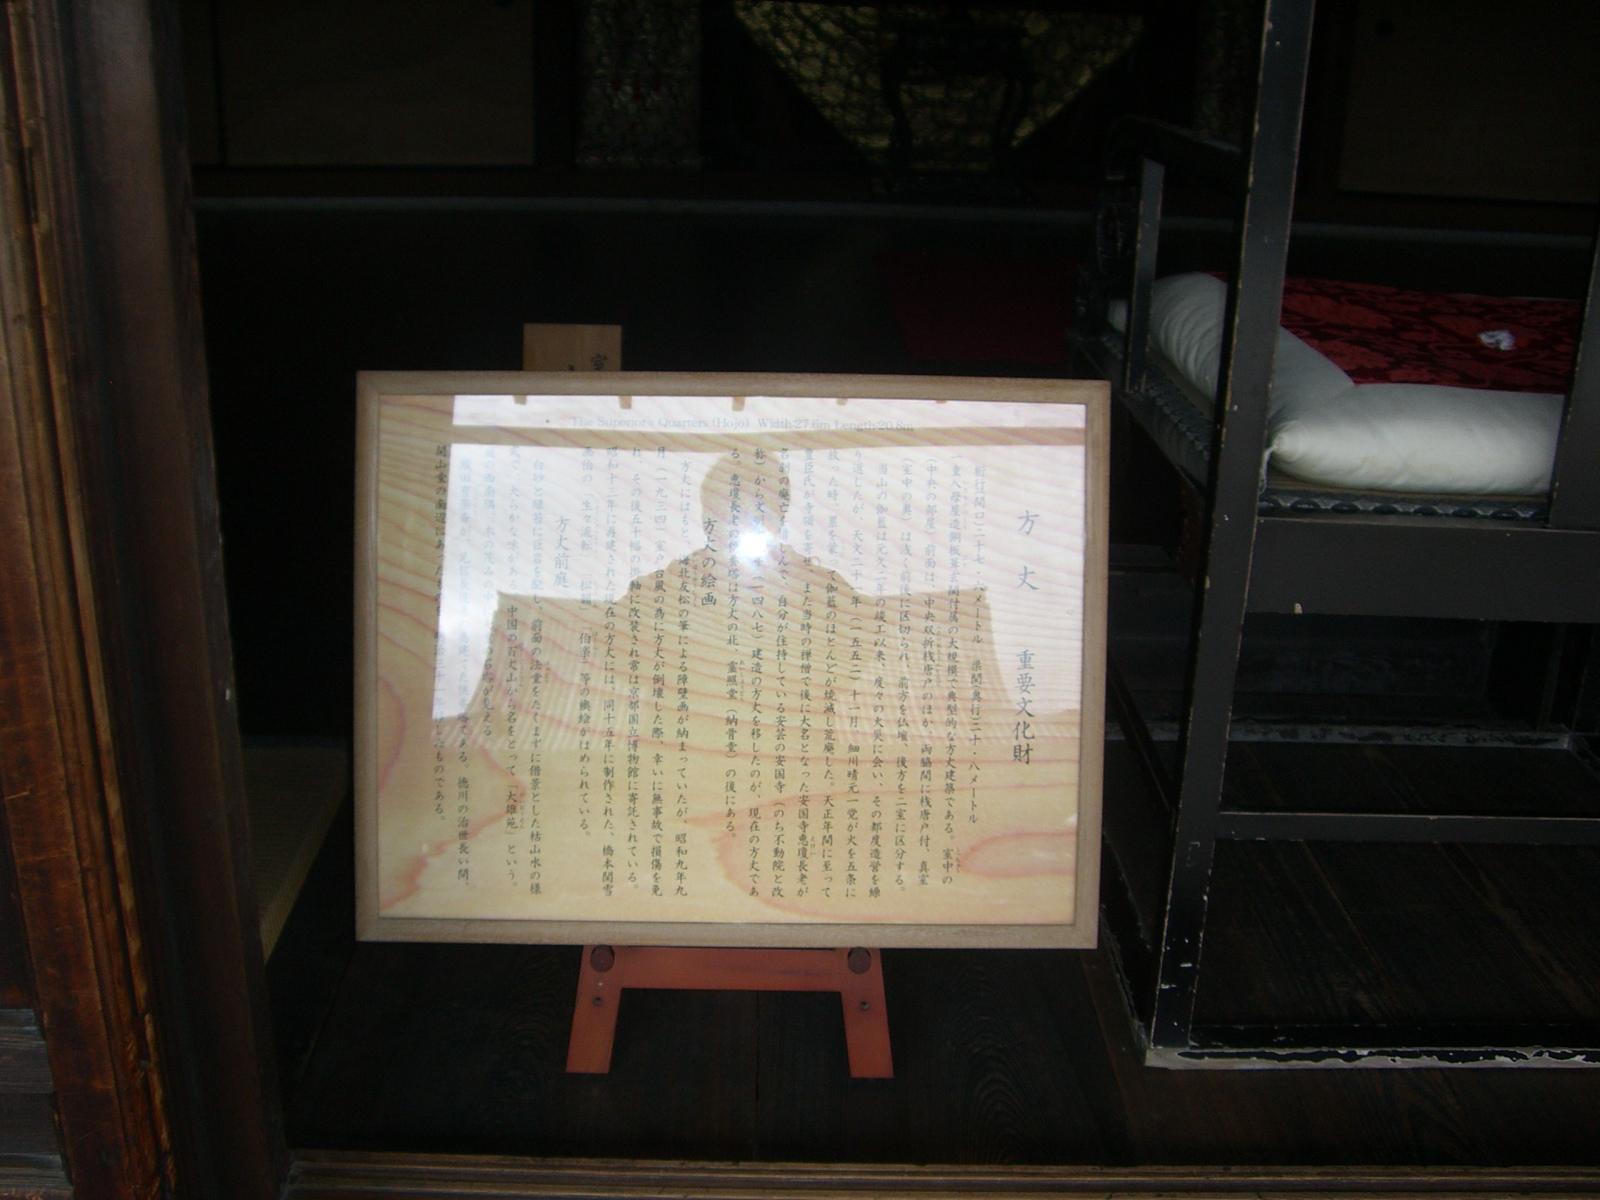 The Superior's Quarters (Hojo) Width:27.6m Length:20.8m
方丈 重要文化財
桁行(間口)二十七・六メートル 梁間(奥行)二十・八メートル
一重入母屋造銅板葺玄関付属の大規模で典型的な方丈建築である。室中の
(中央の部屋)前面は、中央双折桟唐戸のほか、両脇間に桟唐戸付、真室
(室中の奥)は浅く前後に区切られ、前方を仏壇、後方を二室に区分する。
当山の伽藍は元久二年の竣工以来、度々の大災に会い、その都度造営を繰
り返したが、天文二十一年(一五五二)十一月、細川晴元一党が火を五条に
放った時、累を蒙って伽藍のほとんどが焼滅し荒廃した。天正年間に至って
豊臣氏が寺領を寄せ、また当時の禅僧で後に大名となった安国寺恵瓊長老が
名刹の廃亡を惜しんで、自分が住持している安芸の安国寺(のち不動院と改
称)から文明十九年(一四八七)建造の方丈を移したのが、現在の方丈であ
る。恵瓊長老の供養塔は方丈の北、霊照堂(納骨堂)の後にある。
方丈の絵画
方丈にはもと、海北友松の筆による障壁画が納まっていたが、昭和九年九
月(一九三四)室戸台風の為に方丈が倒壊した際、幸いに無事故で損傷を免
れ、その後五十幅の掛軸に改装され常は京都国立博物館に寄託されている。
昭和十二年に再建された現在の方丈には、同十五年に制作された、橋本関雪
画伯の「生々流転」「松韻」「伯夷」等の襖絵がはめられている。
方丈前庭
白砂と緑苔に巨岩を配し、前面の法堂をたくまずに借景とした枯山水の様
式で、大らかな味がある。中国の百丈山から名をとって「大雄苑」という。
庭の西南隅、木の茂みの中 が見える
織田信長 が、 建てた供養塔である。徳川の治世長い間、
開山堂の南辺にあったもの ものである。